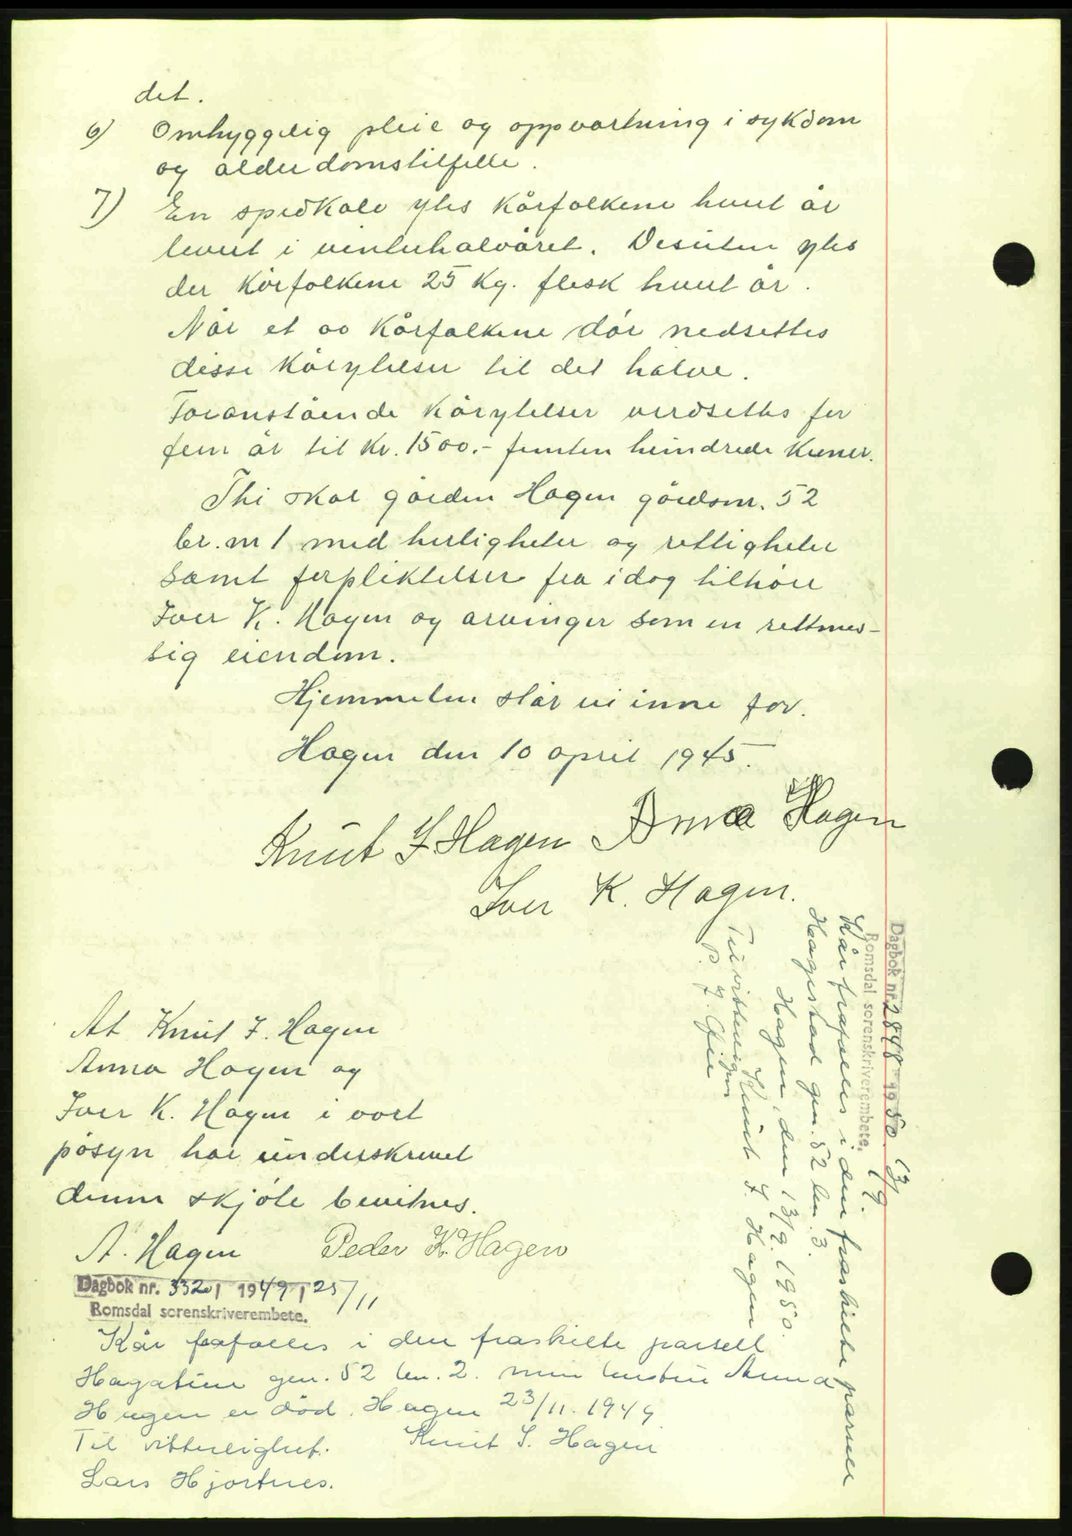 det.
6) Omhyggelig pleie og oppvartning i sykdom
og alderdomstilfelle.
7) En spedkalv ytes kårfolkene hvert år
levert i vinterhalvåret. Desuten ytes
der kårfolkene 25 kg. flesk hvert år.
Når et av kårfolkene dør nedsettes
disse kårytelser til det halve.
Foranstående kårytelser verdsettes for
fem år til kr. 1500.- femten hundrede kroner.
Thi skal gården Hagen gårdsnr. 52
br. nr 1 med herligheter og rettigheter
samt forpliktelser fra idag tilhøre
Iver K. Hagen og arvinger som en rettmes-
sig eiendom.
Hjemmelen står vi inne for.
Hagen den 10 april 1945.
Knut I Hagen Anna Hagen
Iver K. Hagen.
At Knut I. Hagen
Anna Hagen og
Iver K. Hagen i vort
påsyn har underskrevet
denne skjøte bevitnes.
A. Hagen Peder K. Hagen
Dagbok nr. 3320 1949 25/11
Romsdal sorenskriverembete.
Kår frafalles i den fraskilte parsell
gnr. 52 bn. 2. min hustru Anna
Hagen er død. Hagen 23/11. 1949
Til vitterlighet. Knut I. Hagen
Lars Hjortnes.
Dagbok nr. 2848 1950 13/9.
Romsdal sorenskriverembete.
Kår frafalles i den fraskilte parsell
Hagestad gnr. 52 bn. 3.
Hagen, den 13/9. 1950.
Knut I. Hagen
Til vitterlighet
P. J.